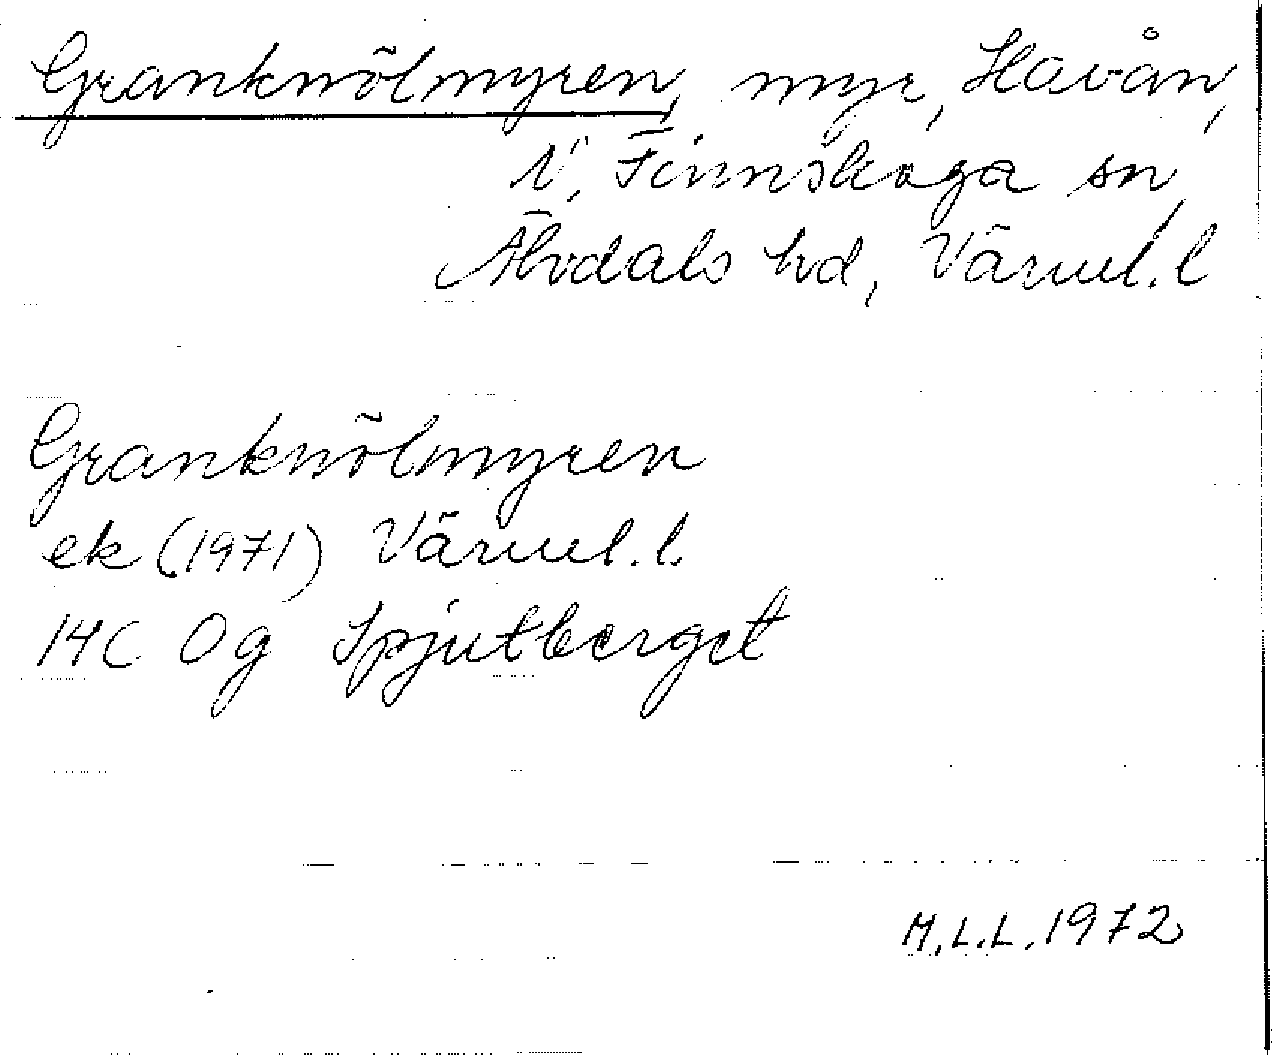 Granknölmyren, myr, Havån,
N. Finnskoga sn,
Älvdals hd, Värml. l
Granknölmyren
ek (1971) Värml. l.
14C 0g Spjutberget
M.L.L. 1972